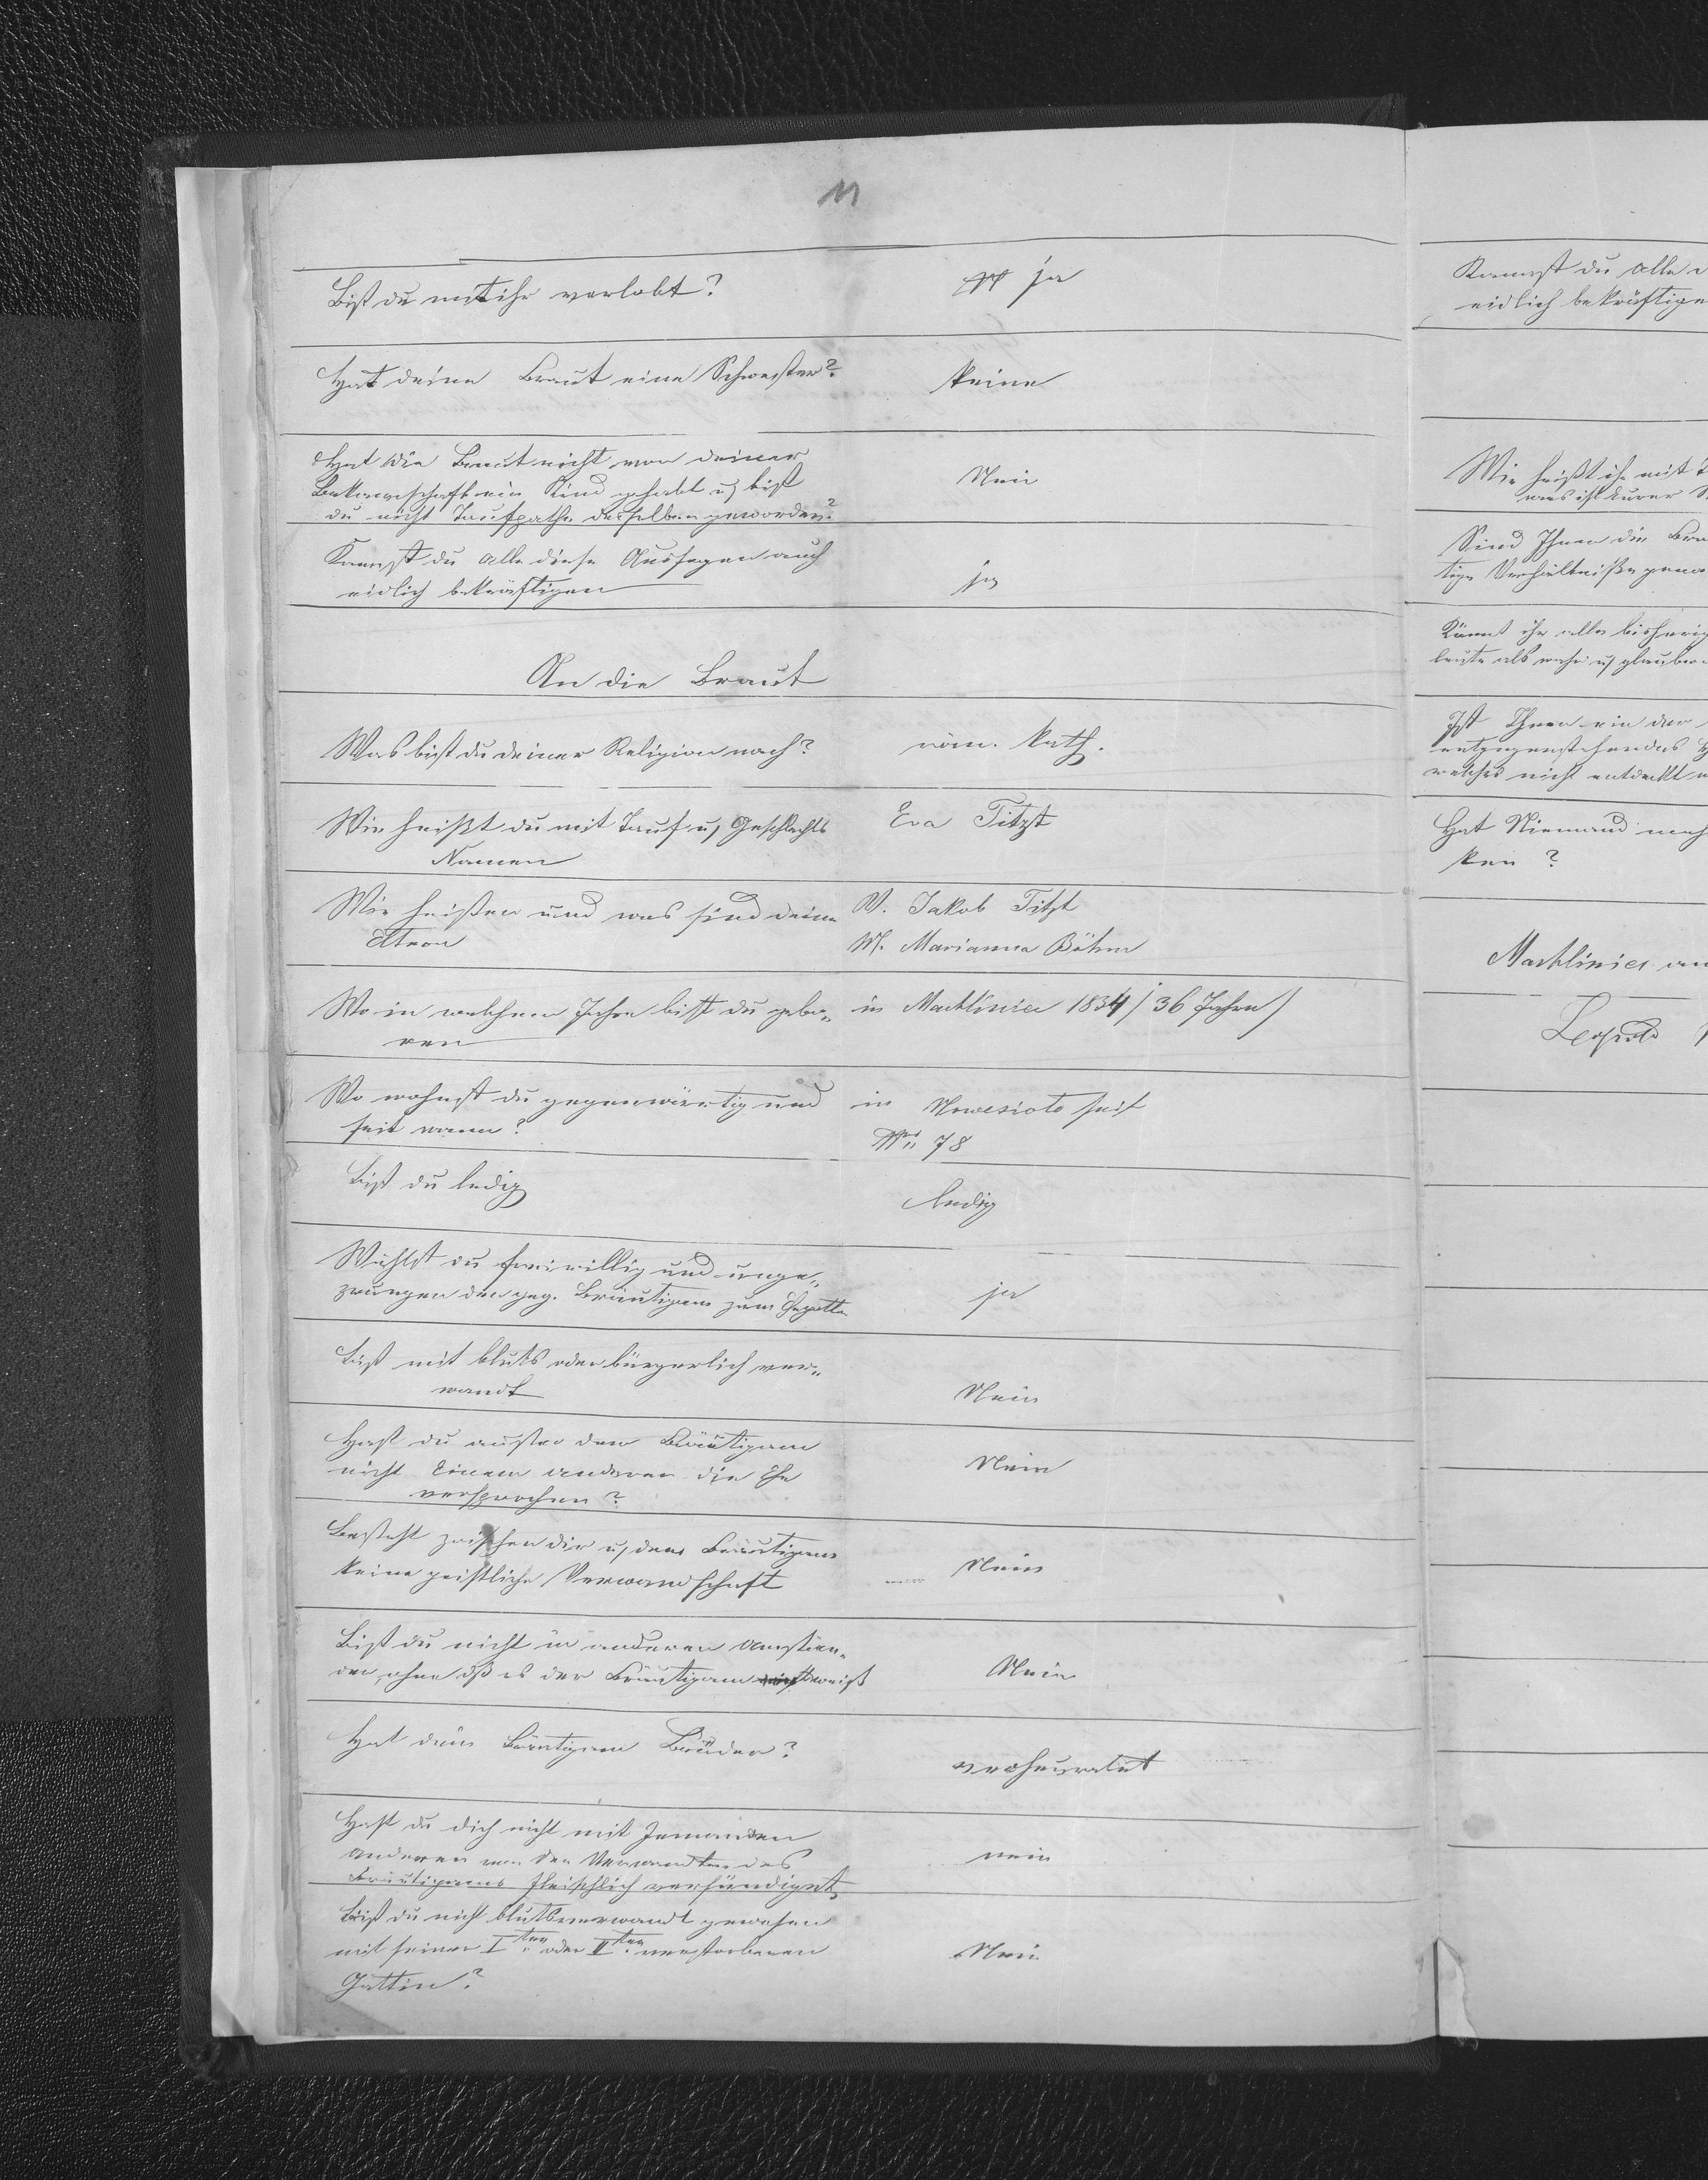 11
Bist du mit ihr verlobt?
ja
Hat deine Braut eine Schwester?
keine
Hat die Braut nicht von deiner
Bekanntschaft ein Kind gehabt u. bist
du nicht Taufpathe desselben geworden?
Nein
Kannst du alle diese Aussagen auch
eidlich bekräftigen
ja
An die Braut
Was bist du deiner Religion nach?
röm. kath.
Wie heißt du mit Tauf u. Geschlechts
Namen
Eva Titzt
Wie heißen und was sind deine
Eltern
V. Jakob Titzt
M. Marianna Böhm
Wo in welchem Jahre bist du gebo„
ren
in Machliniec 1834 / 36 Jahre /
Wo wohnst du gegenwärtig und
seit wann?
in Nowesioło seit
78
Bist du ledig
ledig
Wählst du freiwillig und unge„
zwungen den geg. Bräutigam zum Gegatte
ja
Bist mit bluts oder bürgerlich ver„
wandt
Nein
Hast du außer dem Bräutigam
nicht Einem anderen die Ehe
versprochen?
Nein
Besteht zwischen dir u. dem Bräutigam
keine geistliche Verwandschaft
Nein
Bist du nicht in anderen Umstän„
den, ohne dß es der Bräutigam weiß
Nein
Hat dein Bräutigam Brüder?
verheuratet
Hast du dich nicht mit Jemanden
anderen von den Verwandten des
Bräutigams fleischlich versündiget
nein
Bist du nicht blutsverwandt gewesen
mit seiner I ten oder II ten verstorbenen
Gattin?
Nein
Kannst du alle
eidlich bekräftige
Wie heißt ihr mit
was ist Eurer
Sind Ihnen die
tige Verhältniße
Könnt ihr alles bisherig
leute als wahr u. glauben
Ist Ihnen ein der
entgegenstehendes
welches nicht entdeckt
Hat Niemand
ken?
Machliniec
Leopold